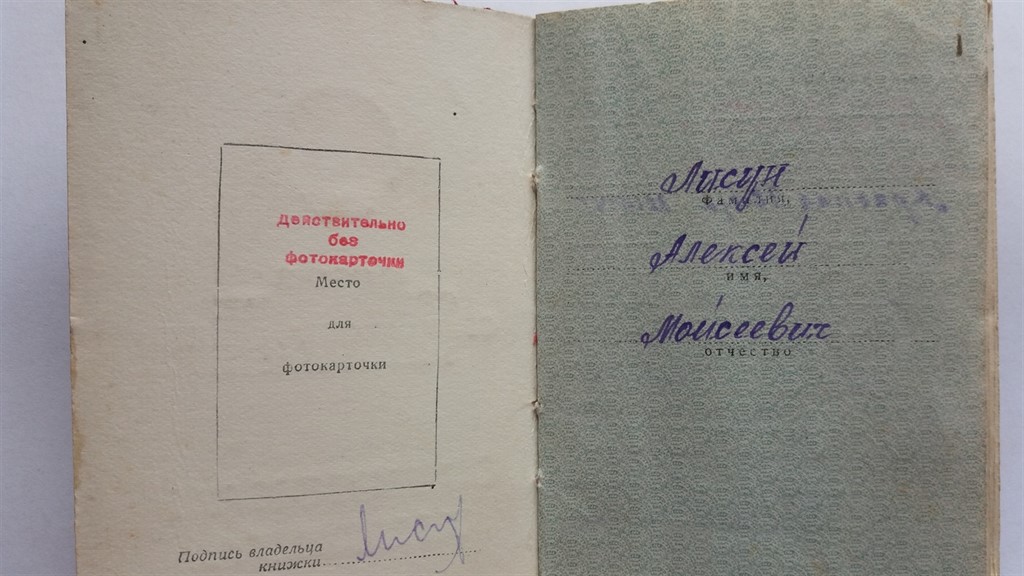 действительно
без
фотокарточки
Место
для
фотокарточки
Подпись владельца
книжки
Лисун
фамилия,
Алексей
имя,
Моисеевич
отчество